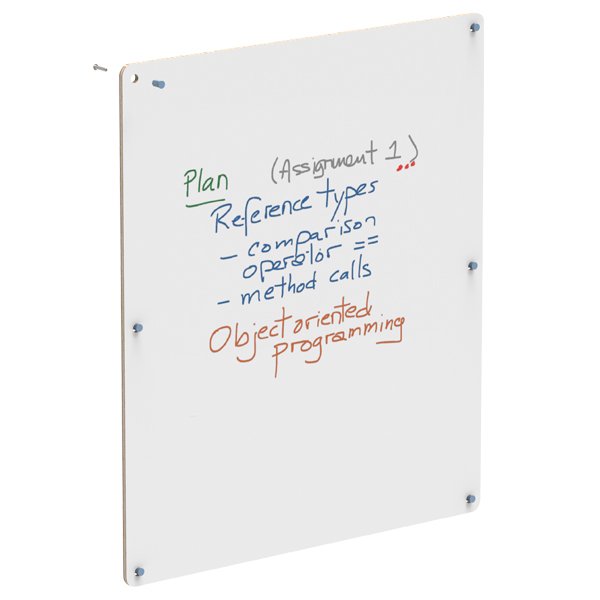 Plan (Assignment 1)
Reference types
- comparison
operator ==
- method calls
Object oriented
programming